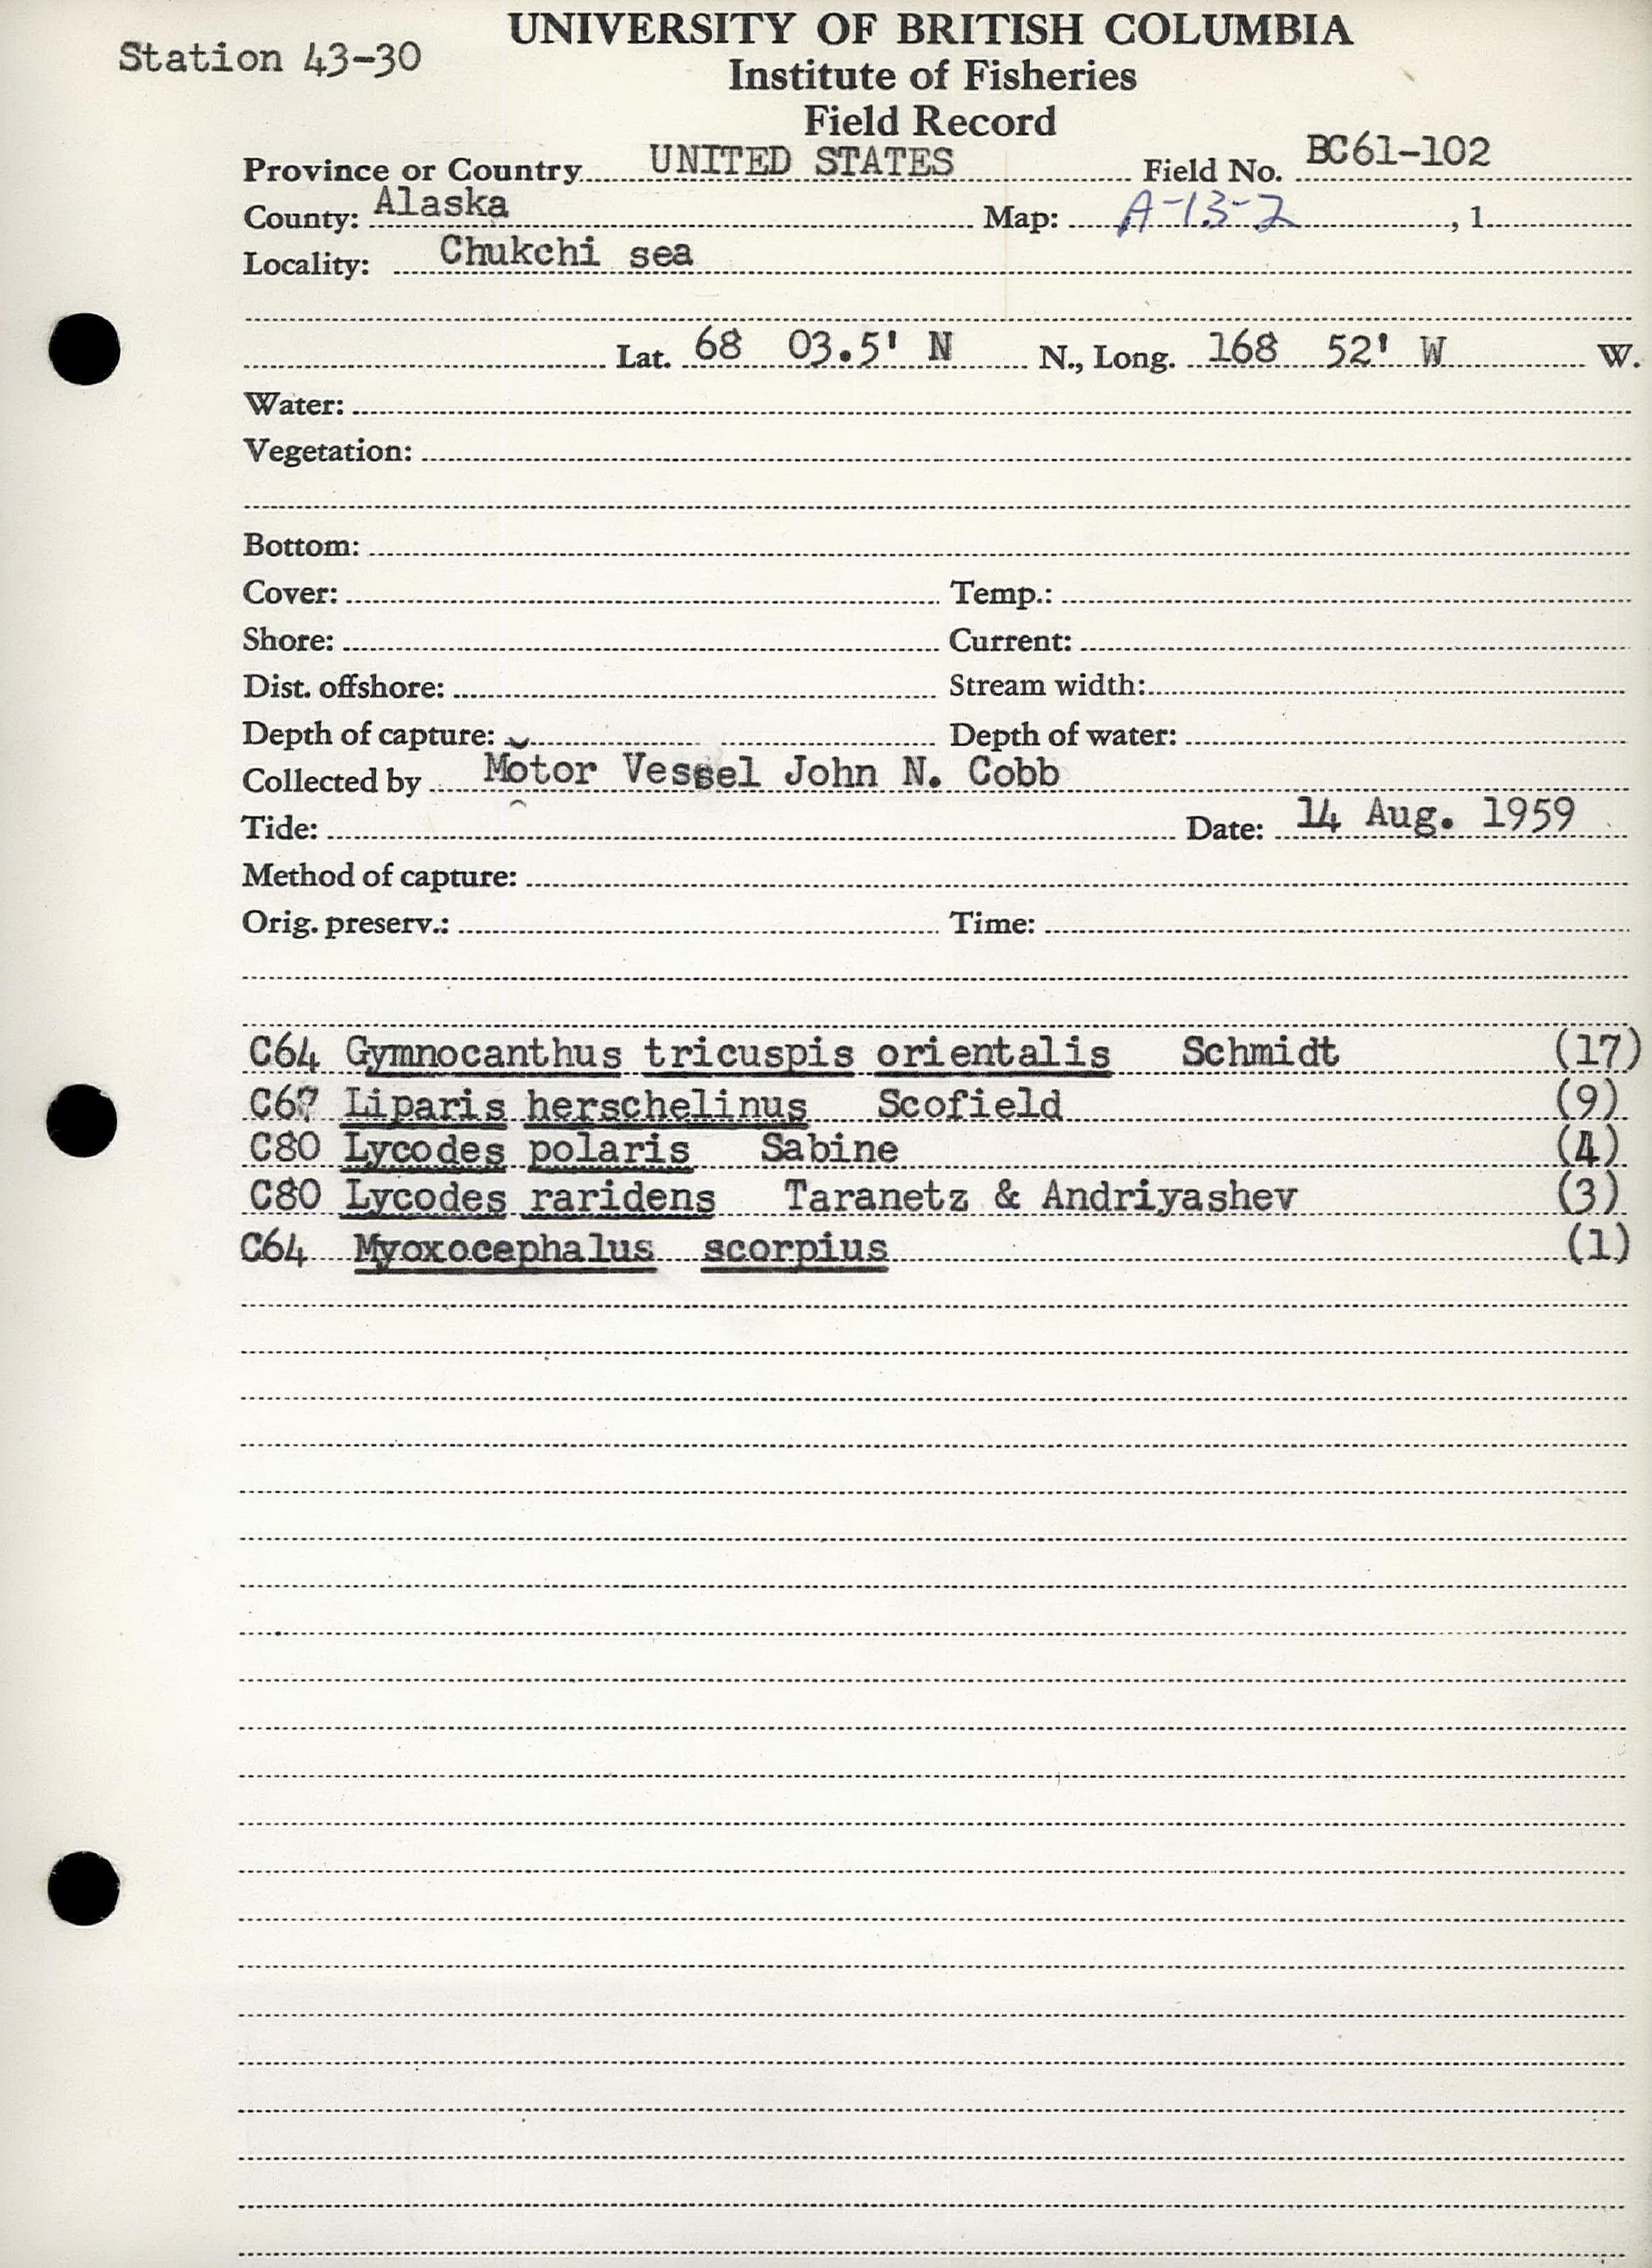 Station 43-30
UNIVERSITY OF BRITISH COLUMBIA
Institute of Fisheries
Field Record
Province or Country UNITED STATES Field No. BC61-102
County: Alaska Map: A-13-2, 1
Locality: Chukchi sea
Lat. 68 03.5' N N., Long. 168 52' W W.
Water:
Vegetation:
Bottom:
Cover: Temp.:
Shore: Current:
Dist. offshore: Stream width:
Depth of capture: Depth of water:
Collected by Motor Vessel John N. Cobb
Tide: Date: 14 Aug. 1959
Method of capture:
Orig. preserv.: Time:
C64 Gymnocanthus tricuspis orientalis Schmidt (17)
C67 Liparis herschelinus Scofield (9)
C80 Lycodes polaris Sabine (4)
C80 Lycodes raridens Taranetz & Andriyashev (3)
C64 Myoxocephalus scorpius (1)